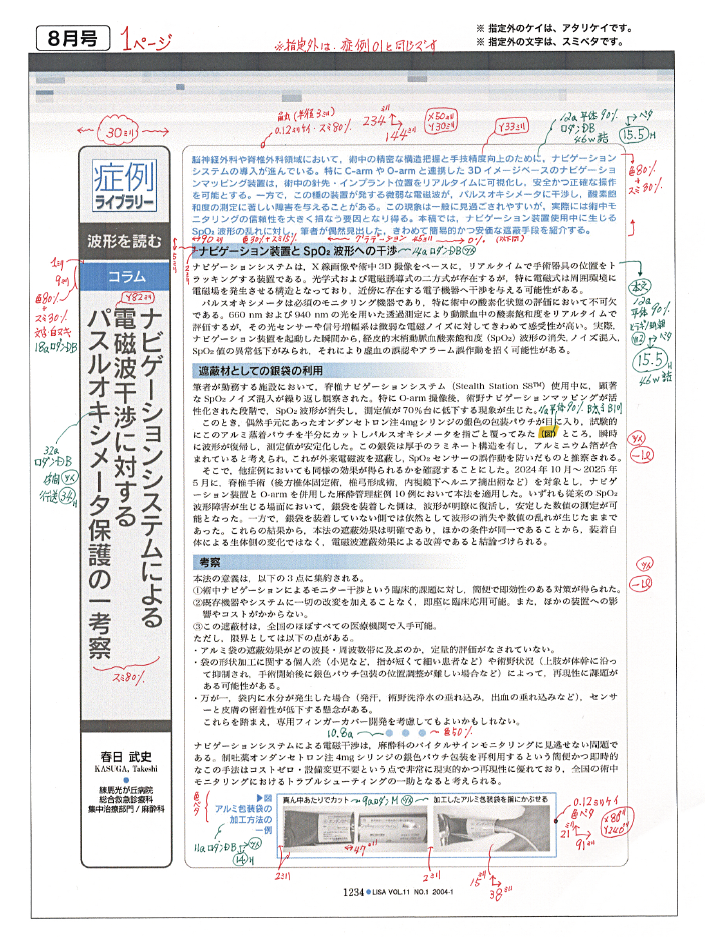 8月号
1ページ
※指定外は、症例01と同じです
※ 指定外のケイは、アタリケイです。
※ 指定外の文字は、スミベタです。
30ミリ
0.12ミリケイ・スミ80%
234ミリ
144ミリ
X50ミリ
Y30ミリ
Y33ミリ
12a 平体 90%
ロダンDB
46w 詰
15.5H
症例
ライブラリー
波形を読む
コラム
Y82ミリ
ナビゲーションシステムによる
電磁波干渉に対する
パスルオキシメータ保護の一考察
スミ80%
春日 武史
KASUGA, Takeshi
練馬光が丘病院
総合救急診療科
集中治療部門 / 麻酔科
脳神経外科や脊椎外科領域において，術中の精密な構造把握と手技精度向上のために，ナビゲーション
システムの導入が進んでいる。特に C-arm や O-arm と連携した 3D イメージベースのナビゲーショ
ンマッピング装置は，術中の針先・インプラント位置をリアルタイムに可視化し，安全かつ正確な操作
を可能とする。一方で，この種の装置が発する微弱な電磁波が，パルスオキシメータに干渉し，酸素飽
和度の測定に著しい障害を与えることがある。この現象は一般に見過ごされやすいが，実際には術中モ
ニタリングの信頼性を大きく損なう要因となり得る。本稿では，ナビゲーション装置使用中に生じる
SpO₂ 波形の乱れに対し，筆者が偶然見出した，きわめて簡易的かつ安価な遮蔽手段を紹介する。
色80%
＋
スミ30%
ナビゲーション装置と SpO₂ 波形への干渉
14aロダンDB
ナビゲーションシステムは，X 線画像や術中 3D 撮像をベースに，リアルタイムで手術器具の位置をト
ラッキングする装置である。光学式および電磁誘導式の二方式が存在するが，特に電磁式は周囲環境に
電磁場を発生させる構造となっており，近傍に存在する電子機器へ干渉を与える可能性がある。
パルスオキシメータは必須のモニタリング機器であり，特に術中の酸素化状態の評価において不可欠
である。660 nm および 940 nm の光を用いた透過測定により動脈血中の酸素飽和度をリアルタイムで
評価するが，その光センサーや信号増幅系は微弱な電磁ノイズに対してきわめて感受性が高い。実際，
ナビゲーション装置を起動した瞬間から，経皮的末梢動脈血酸素飽和度（SpO₂）波形の消失，ノイズ混入，
SpO₂ 値の異常低下がみられ，それにより虚血の誤認やアラーム誤作動を招く可能性がある。
本文
12a
平体
90%
15.5H
46w詰
遮蔽材としての銀袋の利用
筆者が勤務する施設において，脊椎ナビゲーションシステム（Stealth Station S8™）使用中に，顕著
な SpO₂ ノイズ混入が繰り返し観察された。特に O-arm 撮像後，術野ナビゲーションマッピングが活
性化された段階で，SpO₂ 波形が消失し，測定値が 70%台に低下する現象が生じた。
このとき，偶然手元にあったオンダンセトロン注 4mg シリンジの銀色の包装パウチが目に入り，試験的
にこのアルミ蒸着パウチを半分にカットしパルスオキシメータを指ごと覆ってみた（図）ところ，瞬時
に波形が復帰し，測定値が安定化した。この銀袋は厚手のラミネート構造を有し，アルミニウム箔が含
まれていると考えられ，これが外来電磁波を遮蔽し，SpO₂ センサーの誤作動を防いだものと推察される。
そこで，他症例においても同様の効果が得られるかを確認することにした。2024 年 10 月～2025 年
5 月に，脊椎手術（後方椎体固定術，椎弓形成術，内視鏡下ヘルニア摘出術など）を対象とし，ナビゲ
ーション装置と O-arm を併用した麻酔管理症例 10 例において本法を適用した。いずれも従来の SpO₂
波形障害が生じる場面において，銀袋を装着した側は，波形が明瞭に復活し，安定した数値の測定が可
能となった。一方で，銀袋を装着していない側では依然として波形の消失や数値の乱れが生じたままで
あった。これらの結果から，本法の遮蔽効果は明確であり，ほかの条件が同一であることから，装着自
体による生体側の変化ではなく，電磁波遮蔽効果による改善であると結論づけられる。
考察
本法の意義は，以下の 3 点に集約される。
①術中ナビゲーションによるモニター干渉という臨床的課題に対し，簡便で即効性のある対策が得られた。
②既存機器やシステムに一切の改変を加えることなく，即座に臨床応用可能。また，ほかの装置への影
響やコストがかからない。
③この遮蔽材は，全国のほぼすべての医療機関で入手可能。
ただし，限界としては以下の点がある。
・アルミ袋の遮蔽効果がどの波長・周波数帯に及ぶのか，定量的評価がなされていない。
・袋の形状加工に関する個人差（小児など，指が短くて細い患者など）や術野状況（上肢が体幹に沿っ
て抑制され，手術開始後に銀色パウチ包装の位置調整が難しい場合など）によって，再現性に課題が
ある可能性がある。
・万が一，袋内に水分が発生した場合（発汗，術野洗浄水の垂れ込み，出血の垂れ込みなど），センサ
ーと皮膚の密着性が低下する懸念がある。
これらを踏まえ，専用フィンガーカバー開発を考慮してもよいかもしれない。
10.8a
色50%
ナビゲーションシステムによる電磁干渉は，麻酔科のバイタルサインモニタリングに見逃せない問題で
ある。制吐薬オンダンセトロン注 4 mg シリンジの銀色パウチ包装を再利用するという簡便かつ即時的
なこの手法はコストゼロ・設備変更不要という点で非常に現実的かつ再現性に優れており，全国の術中
モニタリングにおけるトラブルシューティングの一助となると考えられる。
▶図
アルミ包装袋の
加工方法の
一例
11aロダンDB
14H
真ん中あたりでカット
9aロダンM
加工したアルミ包装袋を指にかぶせる
0.12ミリケイ
色ベタ
X80ミリ
Y240ミリ
21ミリ
91ミリ
47ミリ
2ミリ
2ミリ
15ミリ
38ミリ
1234●LiSA VOL.11 NO.1 2004-1